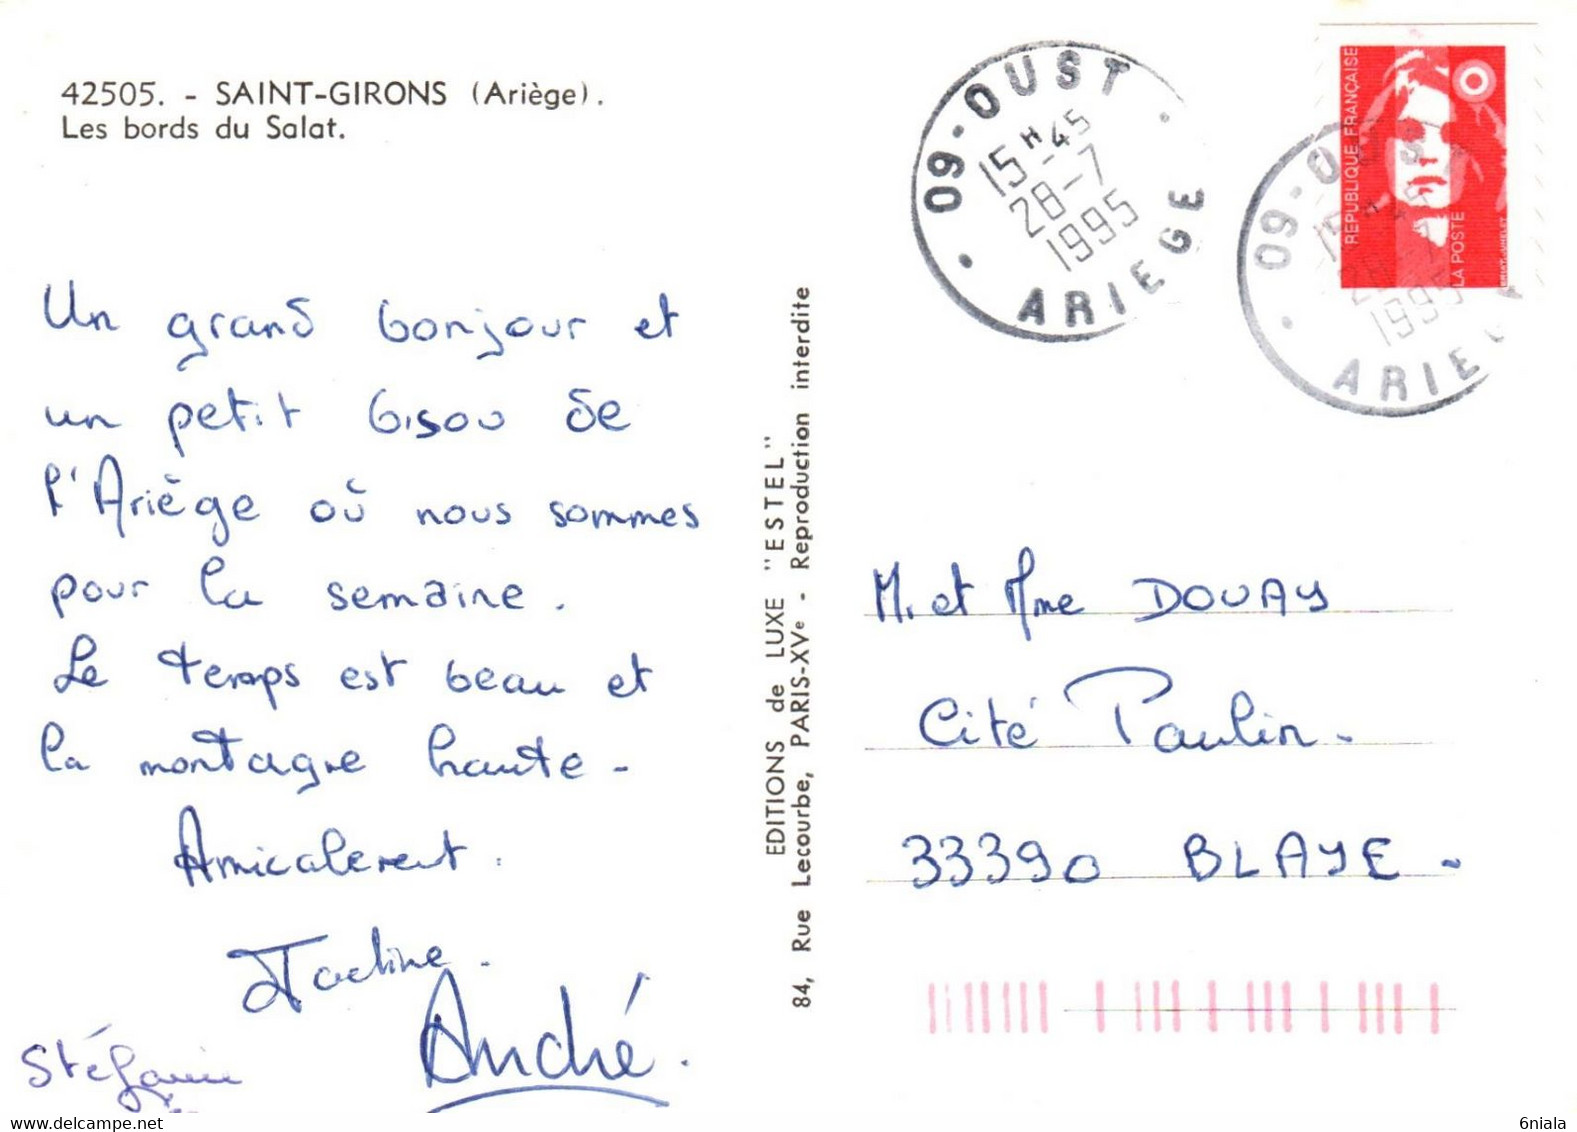 42505. - SAINT-GIRONS (Ariège).
Les bords du Salat.
Un grand bonjour et
un petit bisou de
l'Ariège où nous sommes
pour la semaine.
Le temps est beau et
la montagne haute -
Amicalement.
André.
EDITIONS de LUXE "ESTEL"
84, Rue Lecourbe, PARIS-XVe - Reproduction interdite
09-OUST
15H45
28-7
1995
ARIEGE
REPUBLIQUE FRANÇAISE
LA POSTE
09-OUST
15H45
28-7
1995
ARIEGE
M. et Mme DOUAY
Cité Paulin -
33390 BLAYE -
www.delcampe.net
6niala